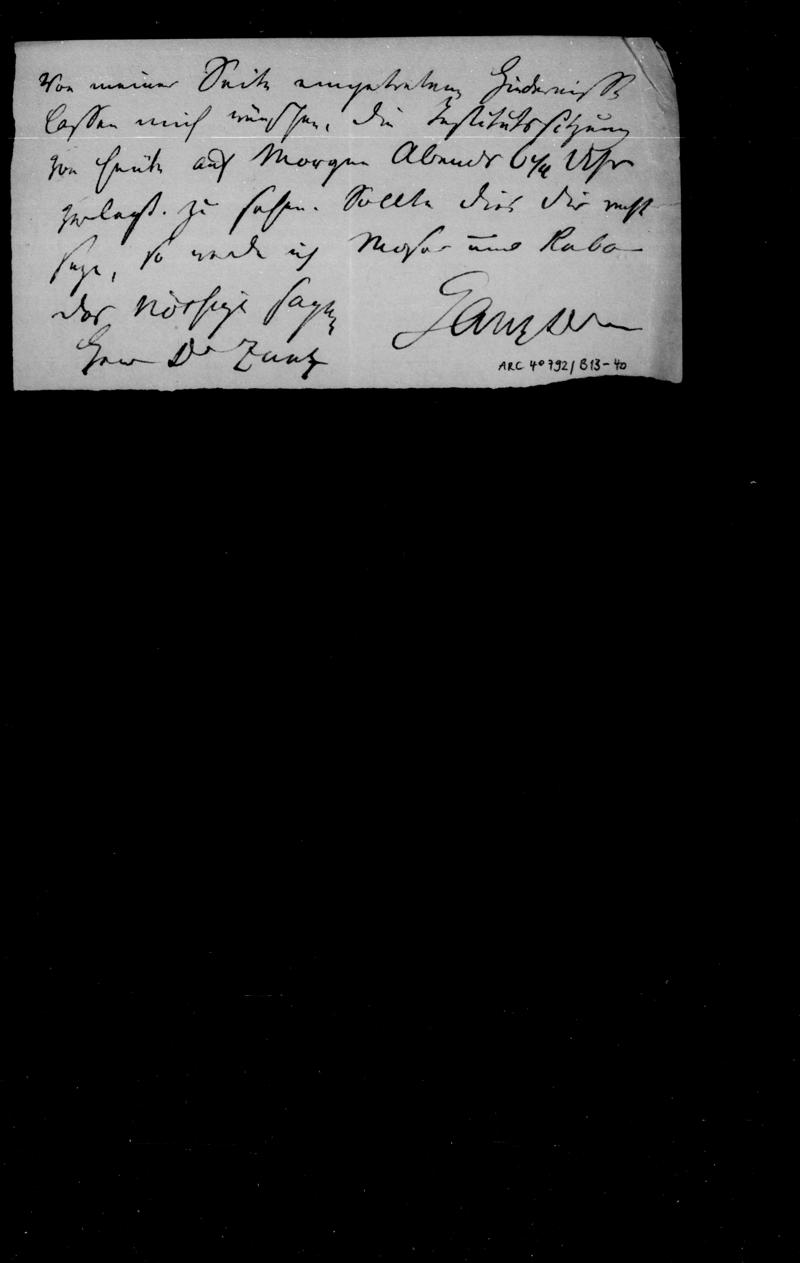 Von meiner Seite eingetretene Hindernisse
lassen mich wünschen, die Institutssitzung
von heute auf Morgen Abends 6 1/2 Uhr
verlegt zu sehen. Sollte dies dir recht
seyn, so werde ich Moser und Rubo
das nöthige sagen
Gans Dr
Herrn Dr Zunz
ARC 4° 792/B13-40